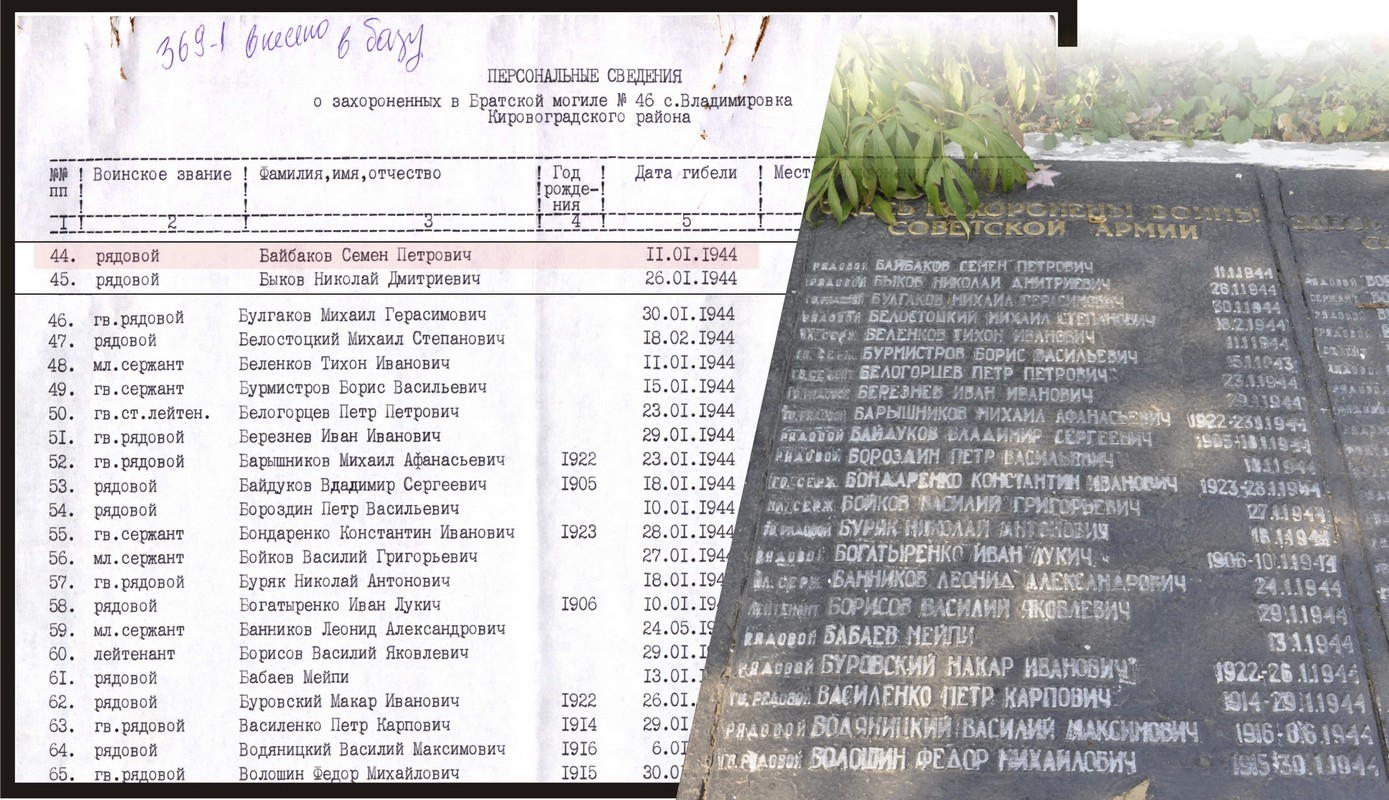 369-1 внесено в базу
ПЕРСОНАЛЬНЫЕ СВЕДЕНИЯ
о захороненных в Братской могиле № 46 с.Владимировка
Кировоградского района
№№ пп ! Воинское звание ! Фамилия,имя,отчество ! Год рожде-ния ! Дата гибели ! Мест
I ! 2 ! 3 ! 4 ! 5 !
44. рядовой Байбаков Семен Петрович II.0I.I944
45. рядовой Быков Николай Дмитриевич 26.0I.I944
46. гв.рядовой Булгаков Михаил Герасимович 30.0I.I944
47. рядовой Белостоцкий Михаил Степанович I8.02.I944
48. мл.сержант Беленков Тихон Иванович II.0I.I944
49. гв.сержант Бурмистров Борис Васильевич I5.0I.I944
50. гв.ст.лейтен. Белогорцев Петр Петрович 23.0I.I944
5I. гв.рядовой Березнев Иван Иванович 29.0I.I944
52. гв.рядовой Барышников Михаил Афанасьевич I922 23.0I.I944
53. рядовой Байдуков Вдадимир Сергеевич I905 I8.0I.I944
54. рядовой Бороздин Петр Васильевич I0.0I.I944
55. гв.сержант Бондаренко Константин Иванович I923 28.0I.I944
56. мл.сержант Бойков Василий Григорьевич 27.0I.I944
57. гв.рядовой Буряк Николай Антонович I8.0I.I94
58. рядовой Богатыренко Иван Лукич I906 I0.0I.I94
59. мл.сержант Банников Леонид Александрович 24.05.I9
60. лейтенант Борисов Василий Яковлевич 29.0I.I
6I. рядовой Бабаев Мейпи I3.0I.
62. рядовой Буровский Макар Иванович I922 26.0I.
63. гв.рядовой Василенко Петр Карпович I9I4 29.0I
64. рядовой Водяницкий Василий Максимович I9I6 6.0I
65. гв.рядовой Волошин Федор Михайлович I9I5 30.0
ВОИНЫ
СОВЕТСКОЙ АРМИИ
РЯДОВОЙ БАЙБАКОВ СЕМЕН ПЕТРОВИЧ 11.1.1944
РЯДОВОЙ БЫКОВ НИКОЛАЙ ДМИТРИЕВИЧ 26.1.1944
БУЛГАКОВ МИХАИЛ ГЕРАСИМОВИЧ 30.1.1944
БЕЛОСТОЦКИЙ МИХАИЛ СТЕПАНОВИЧ 18.2.1944
БЕЛЕНКОВ ТИХОН ИВАНОВИЧ 11.1.1944
БУРМИСТРОВ БОРИС ВАСИЛЬЕВИЧ
БЕЛОГОРЦЕВ ПЕТР ПЕТРОВИЧ 23.1.1944
БЕРЕЗНЕВ ИВАН ИВАНОВИЧ 29.1.1944
БАРЫШНИКОВ МИХАИЛ АФАНАСЬЕВИЧ 1922-23.1.1944
РЯДОВОЙ БАЙДУКОВ ВЛАДИМИР СЕРГЕЕВИЧ 1905-18.1.1944
РЯДОВОЙ БОРОЗДИН ПЕТР ВАСИЛЬЕВИЧ
БОНДАРЕНКО КОНСТАНТИН ИВАНОВИЧ 1923-28.1.1944
БОЙКОВ ВАСИЛИЙ ГРИГОРЬЕВИЧ 27.1.1944
БУРЯК НИКОЛАЙ АНТОНОВИЧ 18.1.1944
РЯДОВОЙ БОГАТЫРЕНКО ИВАН ЛУКИЧ 1906-10.1.1944
МЛ. СЕРЖ. БАННИКОВ ЛЕОНИД АЛЕКСАНДРОВИЧ 24.1.1944
ЛЕЙТЕНАНТ БОРИСОВ ВАСИЛИЙ ЯКОВЛЕВИЧ 29.1.1944
РЯДОВОЙ БАБАЕВ МЕЙПИ 13.1.1944
РЯДОВОЙ БУРОВСКИЙ МАКАР ИВАНОВИЧ 1922-26.1.1944
ГВ. РЯДОВОЙ ВАСИЛЕНКО ПЕТР КАРПОВИЧ 1914-29.1.1944
РЯДОВОЙ ВОДЯНИЦКИЙ ВАСИЛИЙ МАКСИМОВИЧ 1916-06.1944
ГВ. РЯДОВОЙ ВОЛОШИН ФЕДОР МИХАЙЛОВИЧ 1915-30.1.1944